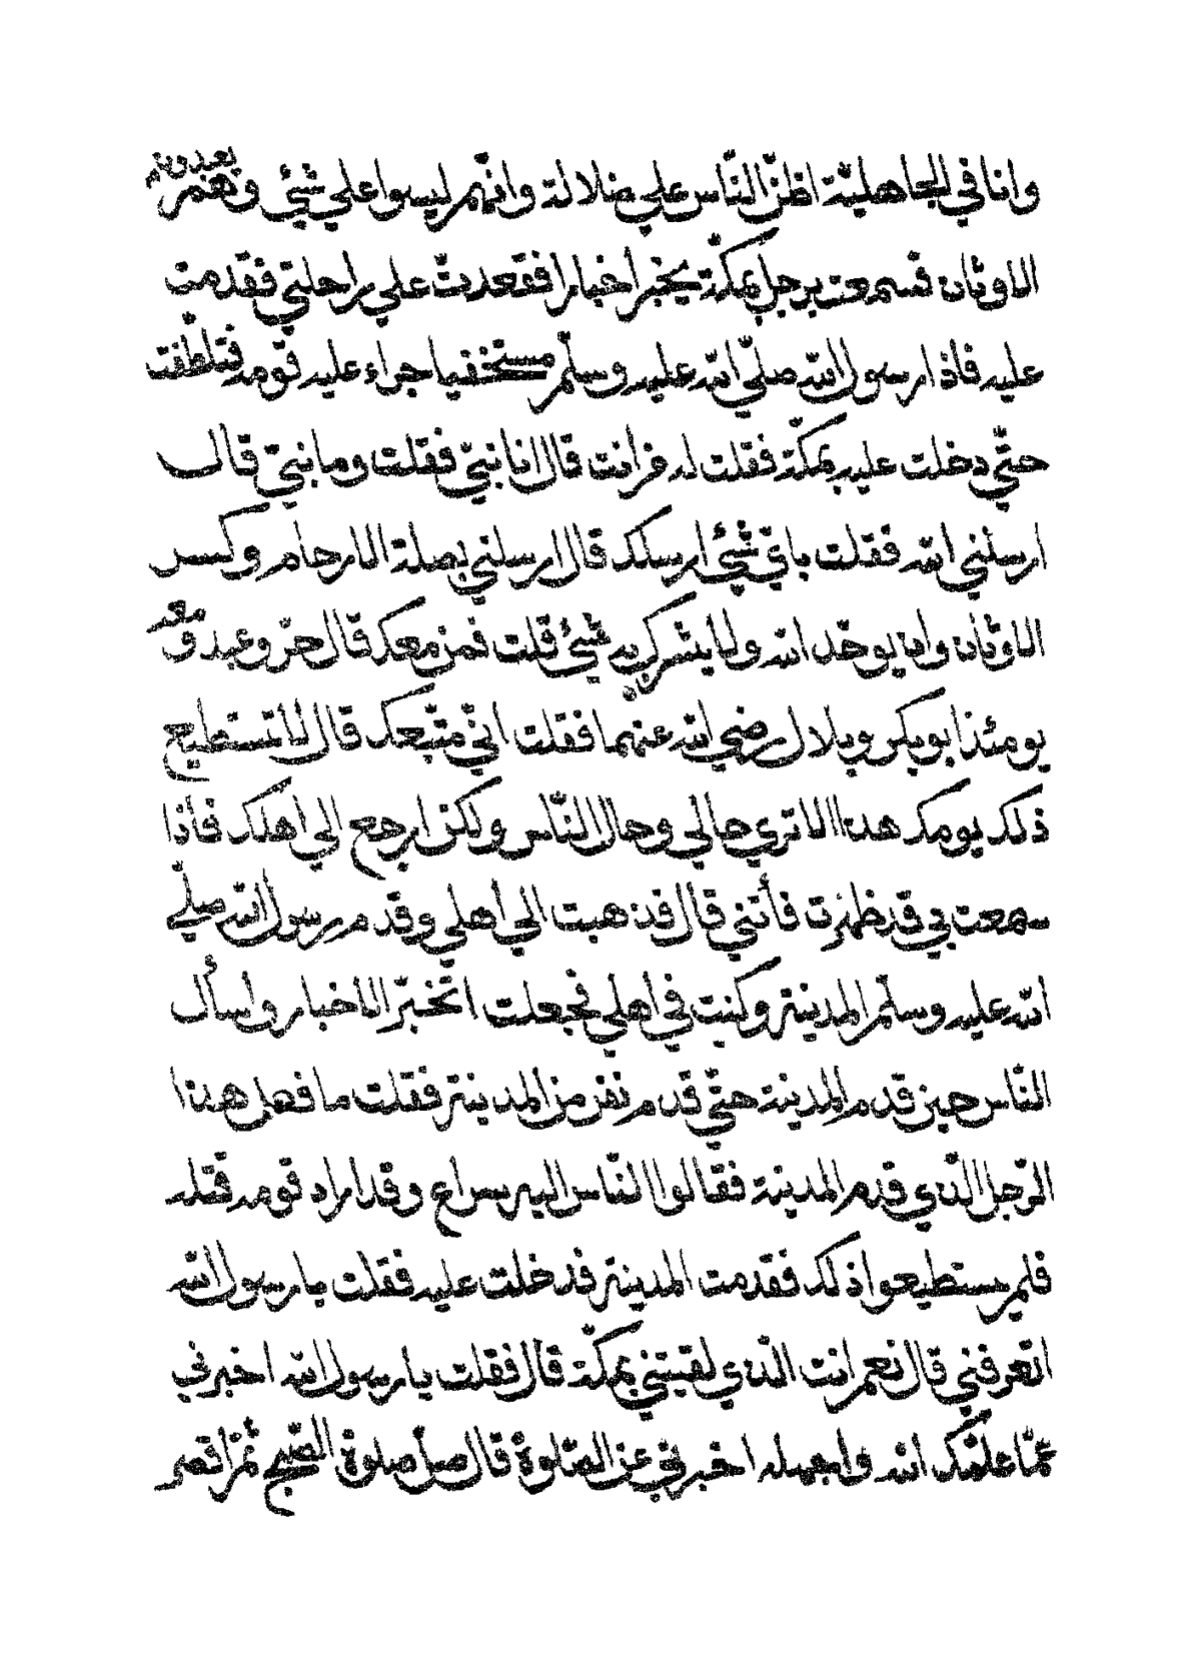 وانا في الجاهليّة اظنّ النّاس علي ضلالة وانّهم ليسوا علي شئي وهم يعبدون
الاوثان فسمعت برجل بمكّة يخبر أخبارا فقعدتّ علي راحلتي فقدمت
عليه فاذا رسول الله صلّي الله عليه وسلّم مستخفيا جراء عليه قومه فتلطّفت
حتّي دخلت عليه بمكّة فقلت له من انت قال انا نبيّ فقلت وما نبيّ قال
ارسلني الله فقلت بايّ شئي ارسلك قال ارسلني بصلة الارحام وكسر
الاوثان وان يوحّد الله ولا يشرك به شئي قلت فمن معك قال حرّ وعبد ومعه
يومئذ ابو بكر وبلال رضي الله عنهما فقلت انّي متّبعك قال لا تستطيع
ذلك يومك هذا الا تري حالي وحال النّاس ولكن ارجع الي اهلك فاذا
سمعت بي قد ظهرت فأتني قال فذهبت الي أهلي وقدم رسول الله صلّي
الله عليه وسلّم المدينة وكنت في اهلي فجعلت اتخبّر الاخبار واسأل
النّاس حين قدم المدينة حتّي قدم نفر من المدينة فقلت ما فعل هذا
الرّجل الّذي قدم المدينة فقالوا النّاس اليه سراع وقد اراد قومه قتله
فلم يستطيعوا ذلك فقدمت المدينة فدخلت عليه فقلت يا رسول الله
اتعرفني قال نعم انت الّذي لقيتني بمكّة قال فقلت يا رسول الله اخبرني
عمّا علّمك الله واجهله اخبرني عن الصّلوة قال صلّ صلوة الصّبح ثمّ اقصر